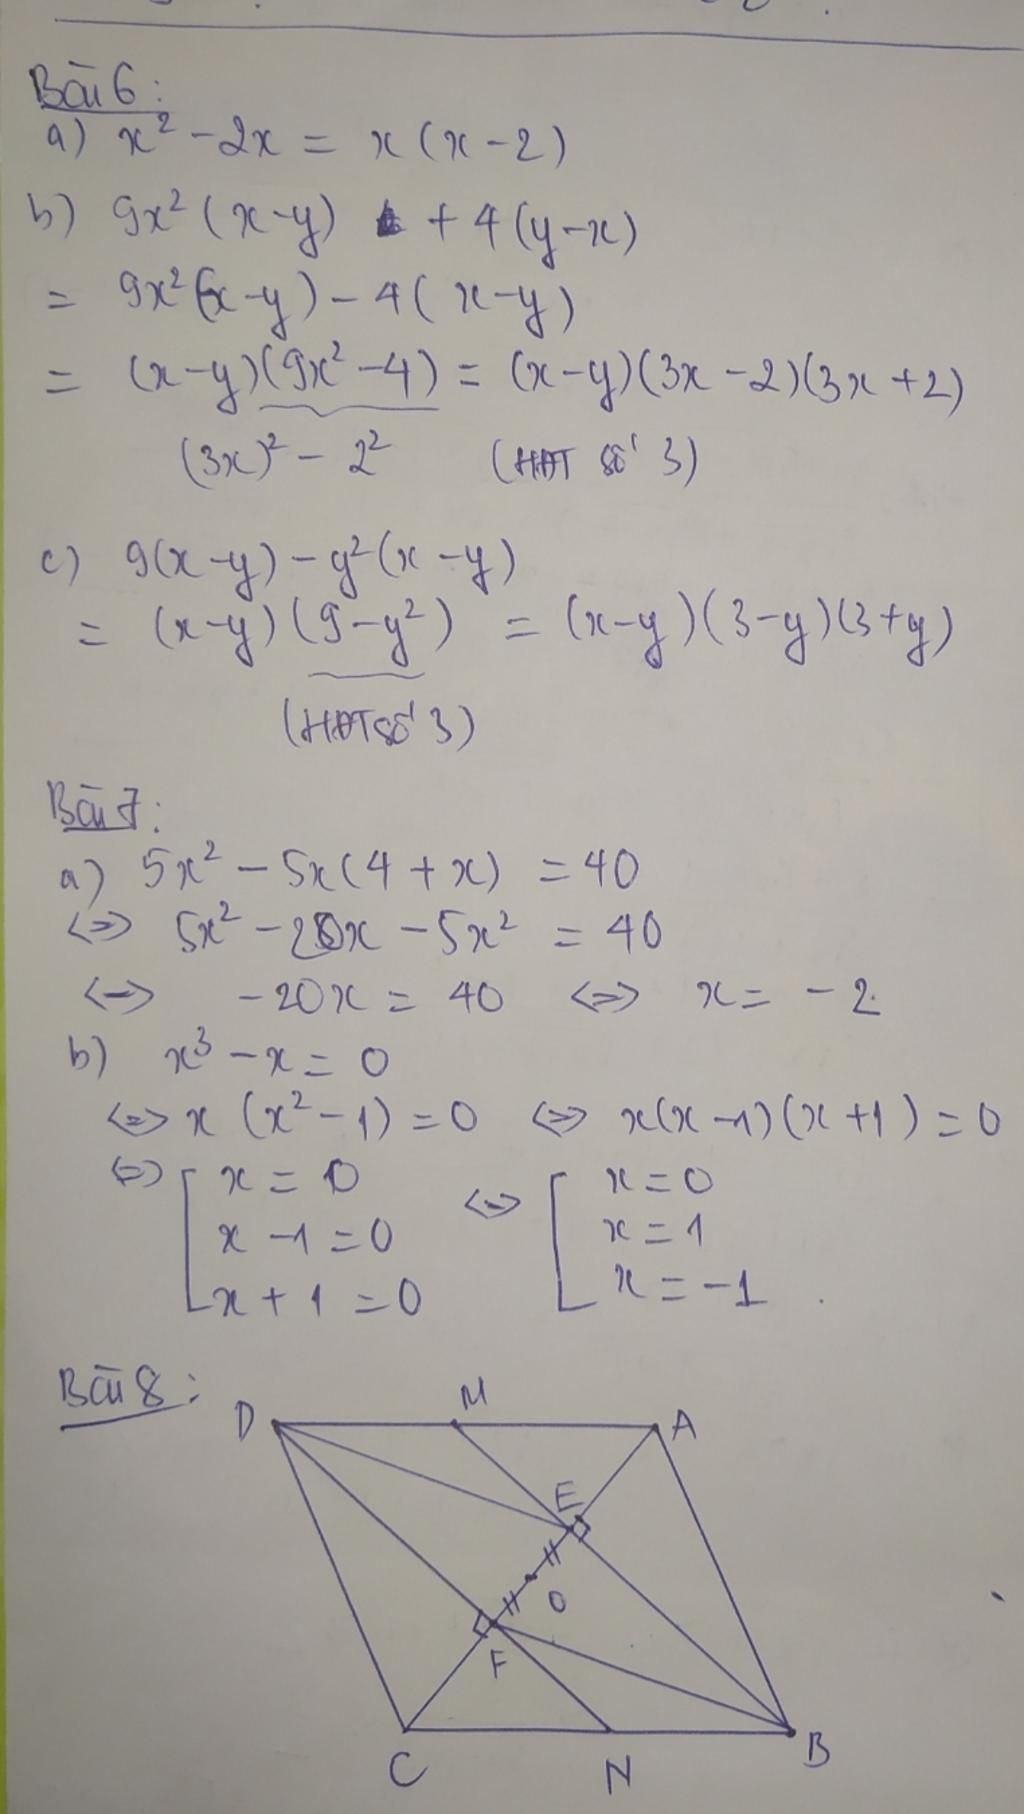 Bài 6:
a) x² - 2x = x(x - 2)
b) 9x²(x-y) + 4(y-x)
= 9x²(x-y) - 4(x-y)
= (x-y)(9x²-4) = (x-y)(3x-2)(3x+2)
(3x)² - 2² (HĐT số 3)
c) 9(x-y) - y²(x-y)
= (x-y)(9-y²) = (x-y)(3-y)(3+y)
(HĐT số 3)
Bài 7:
a) 5x² - 5x(4+x) = 40
<=> 5x² - 20x - 5x² = 40
<=> -20x = 40 <=> x = -2.
b) x³ - x = 0
<=> x(x²-1) = 0 <=> x(x-1)(x+1) = 0
<=> [ x = 0 <=> [ x = 0
x - 1 = 0 x = 1
x + 1 = 0 x = -1.
Bài 8:
D M A
E
O
F
C N B